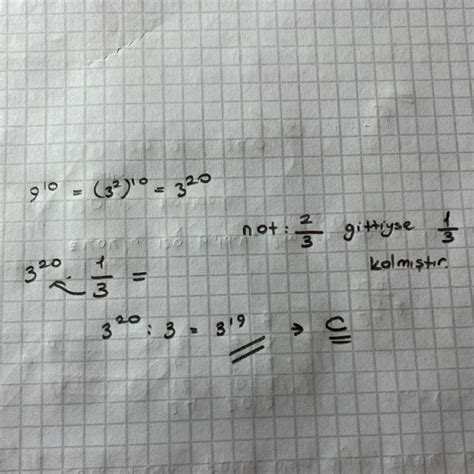 9¹⁰ = (3²)¹⁰ = 3²⁰
not: 2/3 gittiyse 1/3
kalmıştır.
3²⁰ · 1/3 =
3²⁰ : 3 = 3¹⁹ → C